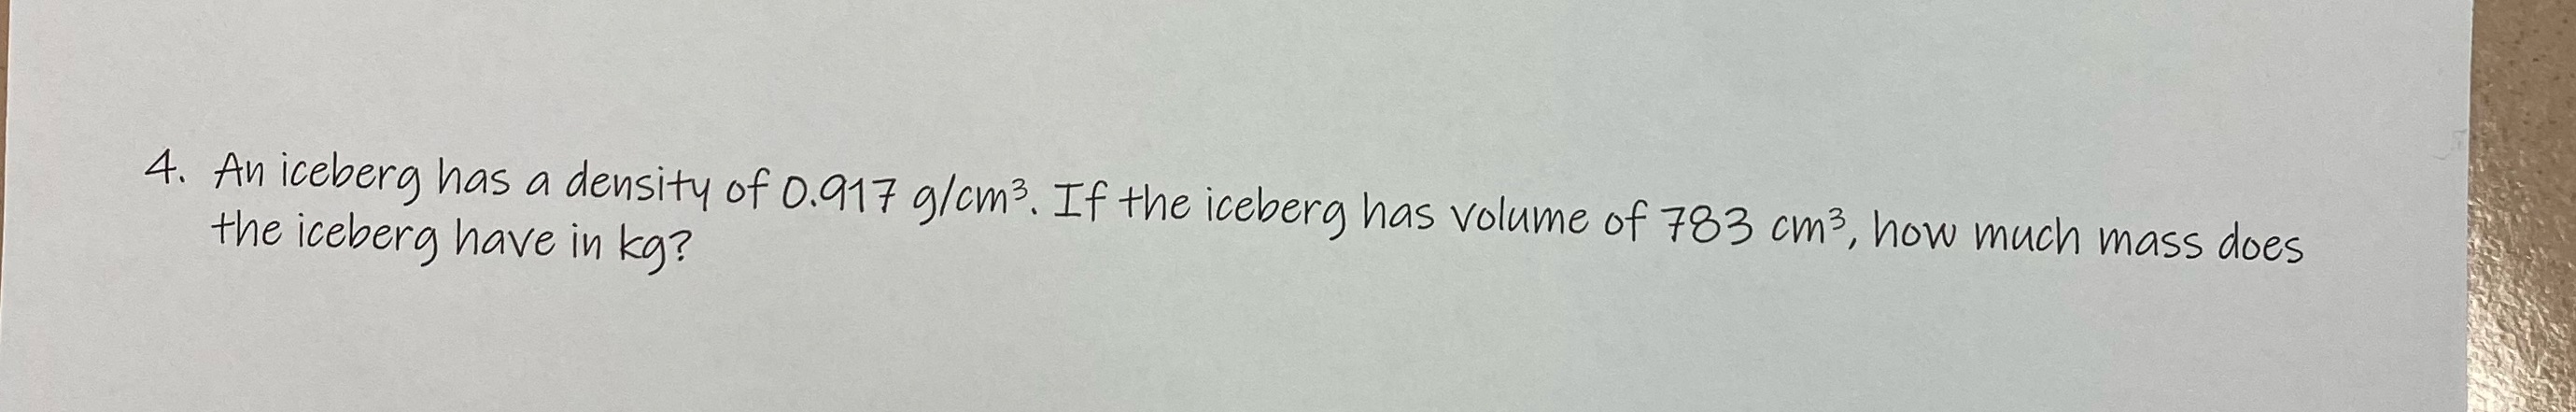 4. An iceberg has a density of 0.917 g/cm³. If the iceberg has volume of 783 cm³, how much mass does
the iceberg have in kg?